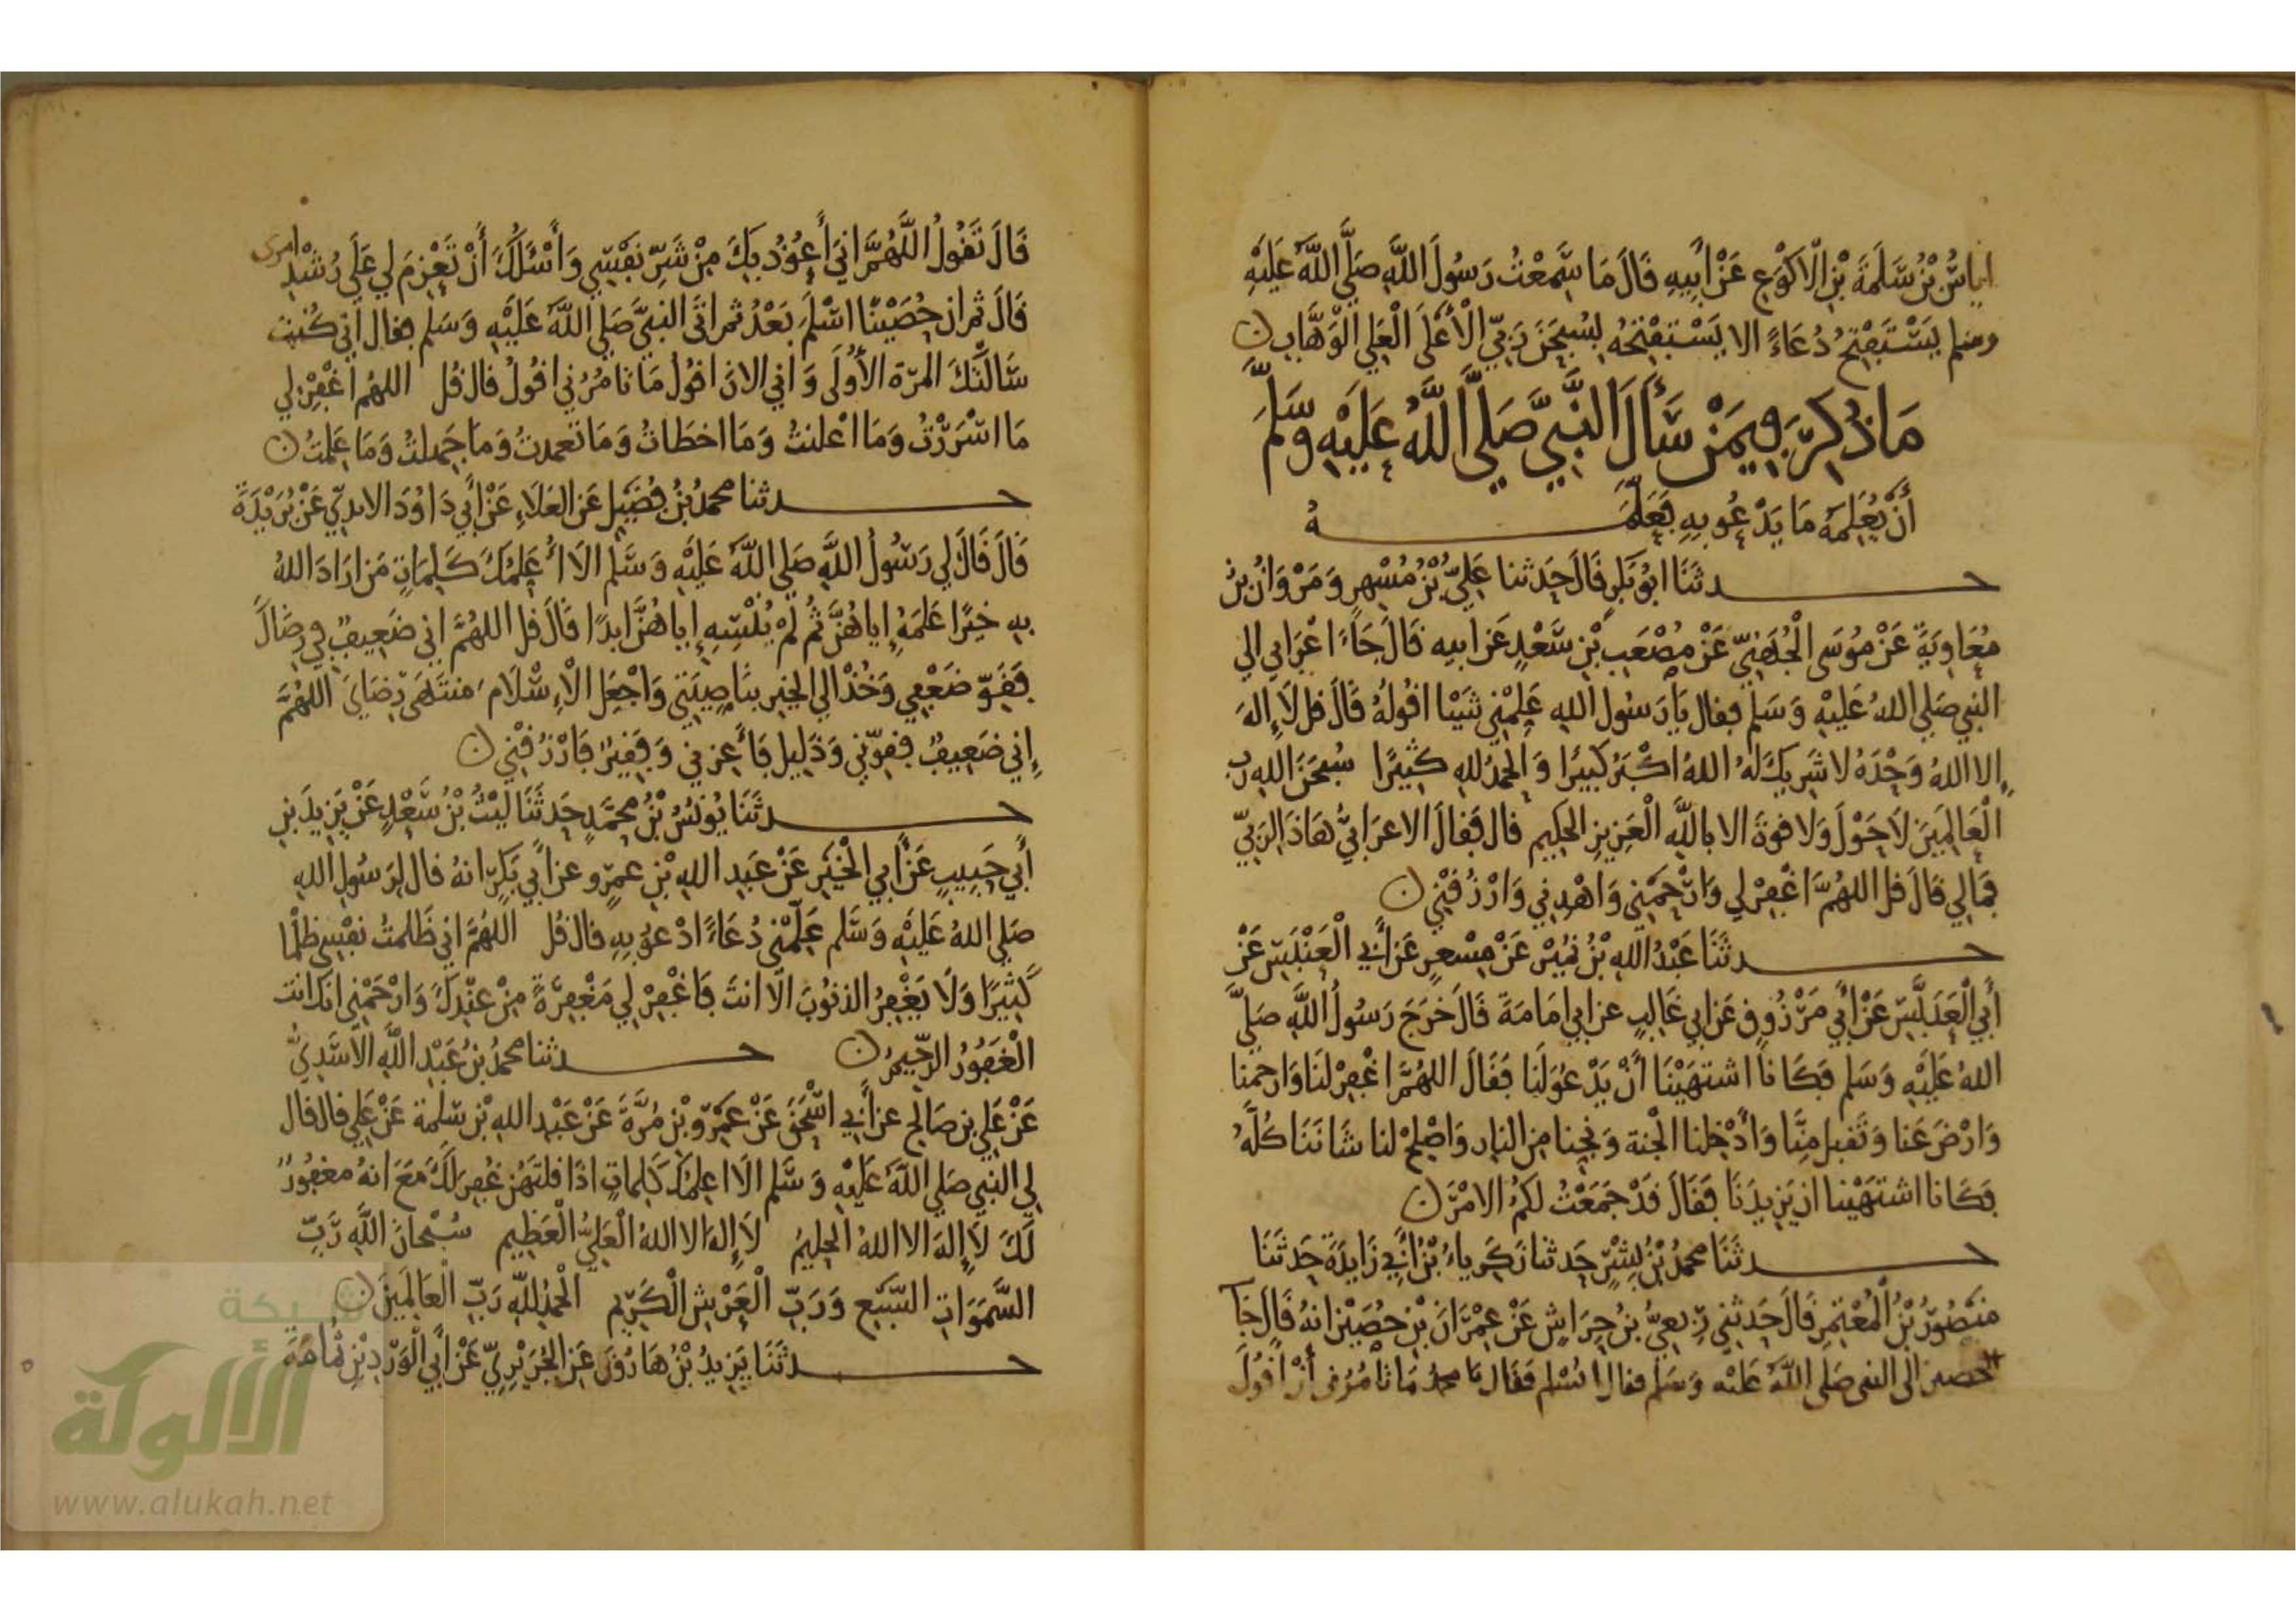 اياسُ بْنُ سَلَمَةَ بْنِ الْاكْوَعِ عَنْ أَبِيهِ قَالَ مَا سَمِعْتُ رَسُولَ اللَّهِ صَلَّى اللَّهُ عَلَيْهِ
وسلم يَسْتَفْتِحُ دُعَاءً الا يَسْتَفْتِحُهُ بِسُبْحَنَ رَبِّيَ الْأَعْلَى الْعَلِي الْوَهَّابِ
مَا ذُكِرَ فِيمَنْ سَأَلَ النَّبِيَّ صَلَّى اللَّهُ عَلَيْهِ وَسَلَّمَ
أَنْ يُعَلِّمَهُ مَا يَدْعُو بِهِ فَعَلَّمَهُ
حدثَنَا ابُو بَكرٍ قَالَ حَدثنا عَلِيُّ بْنُ مُسْهِرٍ وَمَرْوَانُ بنُ
مُعَاوِيَةَ عَنْ مُوسَى الْجُهَنِيِّ عَنْ مُصْعَبِ بْنِ سَعْدٍ عَن ابيه قَالَ جَاءَ اعْرَابي الي
النبي صَلى اللهُ عَلَيْهِ وَسَلم فقال يَا رَسُول اللهِ عَلِّمْنِي شَيْئا اقُولهُ قَالَ قل لَا إِلهَ
إِلا اللهُ وَحْدَهُ لا شَرِيكَ لَهُ اللهُ اكْبَرُ كَبِيرًا وَالحمدُ للهِ كثِيرًا سُبحَنَ اللهِ رَب
الْعَالَمِينَ لَا حَوْلَ وَلا قوةَ الا باللَّهِ الْعَزِيزِ الحكِيمِ قال فَقالَ الاعرَابيُّ هَاذَا لِرَبِّي
فَمَا لِي قَالَ قل اللهُمَّ اغْفِرْ لِي وَارْحَمْنِي وَاهْدِنِي وَارْزُقْنِي
حدثَنَا عَبْدُ اللهِ بْنُ نُمَيْرٍ عَنْ مِسْعَرٍ عَن أَبِي الْعَنْبَسِ عَنْ
أَبِي الْعَدَبَّسِ عَنْ أَبِي مَرْزُوقٍ عَن ابي غَالِبٍ عن ابي امَامَةَ قَالَ خَرَجَ رَسُولُ اللَّهِ صَلَّى
اللهُ عَلَيْهِ وَسَلم فَكَانا اشتهَيْنَا أَنْ يَدْعُوَ لَنَا فَقَالَ اللهُمَّ اغْفِرْ لنَا وَارحمنا
وَارْضَ عَنا وَتقبل مِنَّا وَأَدْخِلنا الْجنة وَنجِنا مِن النار وَاصْلِحْ لنا شَانَنَا كُلَّهُ
فَكَانا اشتهَيْنا ان يَزِيدَنَا فَقَالَ قَدْ جَمَعْتُ لكمُ الامْرَ
حدثَنَا محمدُ بْنُ بِشْرٍ حَدثنا زَكَرِياءُ بْنُ أَبِي زَايِدَةَ حَدثَنَا
مَنْصُورُ بْنُ الْمُعْتَمِرِ قَالَ حَدثنِي رِبعِيُّ بنُ حِرَاشٍ عَنْ عِمْرَانَ بْنِ حُصَيْنٍ انهُ قَالَ جَا
حصين الى النبي صَلى اللَّهُ عَلَيْهِ وَسَلم فقال اسْلِم فَقَال يا محمدُ مَا تامُرُنِي أَنْ أَقُولَ
قَالَ تَقُولُ اللَّهُمَّ انِي أَعُوذُ بِكَ مِنْ شَرِّ نَفْسِي وَأَسْئَلُكَ أَنْ تَعْزِمَ لِي عَلَى رُشْدِ امرى
قَالَ ثم ان حُصَيْنًا اسْلَمَ بَعْدُ ثم اتَى النبِيَّ صَلى اللَّهُ عَلَيْهِ وَسَلم فقال اني كُنت
سَالْتُكَ المرّة الأُولَى وَاني الانَ اقولُ مَا تامُرُني اقولُ قال قُل اللهُم اغْفِرْ لِي
مَا اسْرَرْتُ وَمَا اعْلنتُ وَمَا اخطَاتُ وَمَا تعمدتُ وَمَا جَهلتُ وَمَا عَلِمْتُ
حدثنا محمدُ بْنُ فُضَيْلٍ عَن العَلَاءِ عَنْ أَبِي دَاوُدَ الاودِيّ عَنْ بُرَيْدَةَ
قَالَ قَالَ لِي رَسُولُ اللَّهِ صَلى اللَّهُ عَلَيْهِ وَسَلم الَا أُعَلمُكَ كَلِمَاتٍ مَن ارَادَ اللهُ
بِهِ خَيْرًا عَلمَهُ إِياهُنَّ ثُم لَمْ يُنْسِهِ إِياهُنَّ ابدًا قَالَ قل اللهُمَّ اني ضَعِيفٌ فِي رِضَاكَ
فَقَوِّ ضَعْفِي وَخُذْ الي الخيرِ بنَاصِيَتِي وَاجْعَلِ الْإِسْلَامَ مُنتَهَى رِضَايَ اللهُمَّ
إِنِي ضَعِيفٌ فقوّنِي وَذَلِيل فَأَعزني وَفَقِيرٌ فَارْزُقْنِي
حدثَنَا يُونُسُ بْنُ محمَّدٍ حَدثَنَا لَيْثُ بْنُ سَعْدٍ عَنْ يَزِيدَ بنِ
أَبِي حَبِيبٍ عَنْ أَبِي الْخَيْرِ عَنْ عَبدِ اللهِ بْنِ عمرٍو عن أبي بَكرٍ انهُ قال لِرَسُولِ اللهِ
صَلى اللهُ عَلَيْهِ وَسَلم عَلِّمْنِي دُعَاءً ادْعُو بِهِ قال قُل اللهُمَّ انِي ظَلمتُ نَفْسِي ظلْمًا
كَثِيرًا وَلَا يَغْفِرُ الذنُوبَ الا انتَ فَاغْفِرْ لِي مَغْفِرَةً مِنْ عِنْدِكَ وَارْحَمْنِي انكَ انت
الْغَفُورُ الرَّحِيمُ حدثنا محمدُ بْنُ عَبْدِ اللَّهِ الاسَدِيُّ
عَنْ عَلي بن صَالح عن أَبِي اسْحَقَ عَنْ عَمْرِو بْنِ مُرَّةَ عَنْ عَبْدِ اللهِ بْنِ سَلِمة عَنْ عَلِي قال قال
لِي النبِي صَلى اللَّهُ عَلَيْهِ وَسَلم الَا اعَلِّمُكَ كَلِماتٍ اذَا قلتَهُن غُفِرَ لَكَ مَعَ انهُ مغفُورٌ
لَكَ لَا إِلهَ الا اللهُ الحليمُ لَا إِلهَ الا اللهُ الْعَلِيُّ الْعَظِيم سُبْحَانَ اللَّهِ رَبِّ
السَّمَوَاتِ السَّبْعِ وَرَبِّ الْعَرْشِ الْكَرِيمِ الْحَمدُ لِلَّهِ رَبِّ الْعَالَمِينَ
حدثَنَا يَزِيدُ بْنُ هَارُونَ عَنِ الْجُرَيْرِيِّ عَنْ أَبِي الْوَرْدِ بْنِ ثُمَامَةَ
شبكة
الألوكة
www.alukah.net